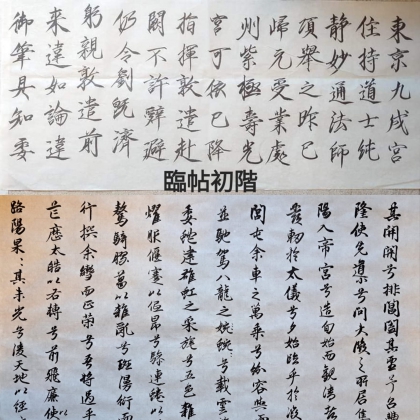 東京九成宮
住持道士純
静妙通法師
項舉之昨已
歸元受業處
州紫極壽光
宮可依已降
指揮敦遣赴
闕不許辭避
仍令劉旣濟
躬親敦遣前
来違如論違
御筆具知委
臨帖初階
其開關兮排閶闔
隆使先導兮問大微之所居集
陽入帝宮兮造旬始而觀清
發軔於太儀兮夕始臨乎於
閭屯余車之萬乘兮紛容與
並馳駕八龍之婉婉兮載雲
委蛇建雄虹之采旄兮五色雜
燿服偃蹇以低昂兮驂連蜷以
驁騎膠葛以雜亂兮斑漫衍而
行撰余轡而正策兮吾將過乎
芒歷太皓以右轉兮前飛廉以
路陽杲〻其未光兮凌天地以徑